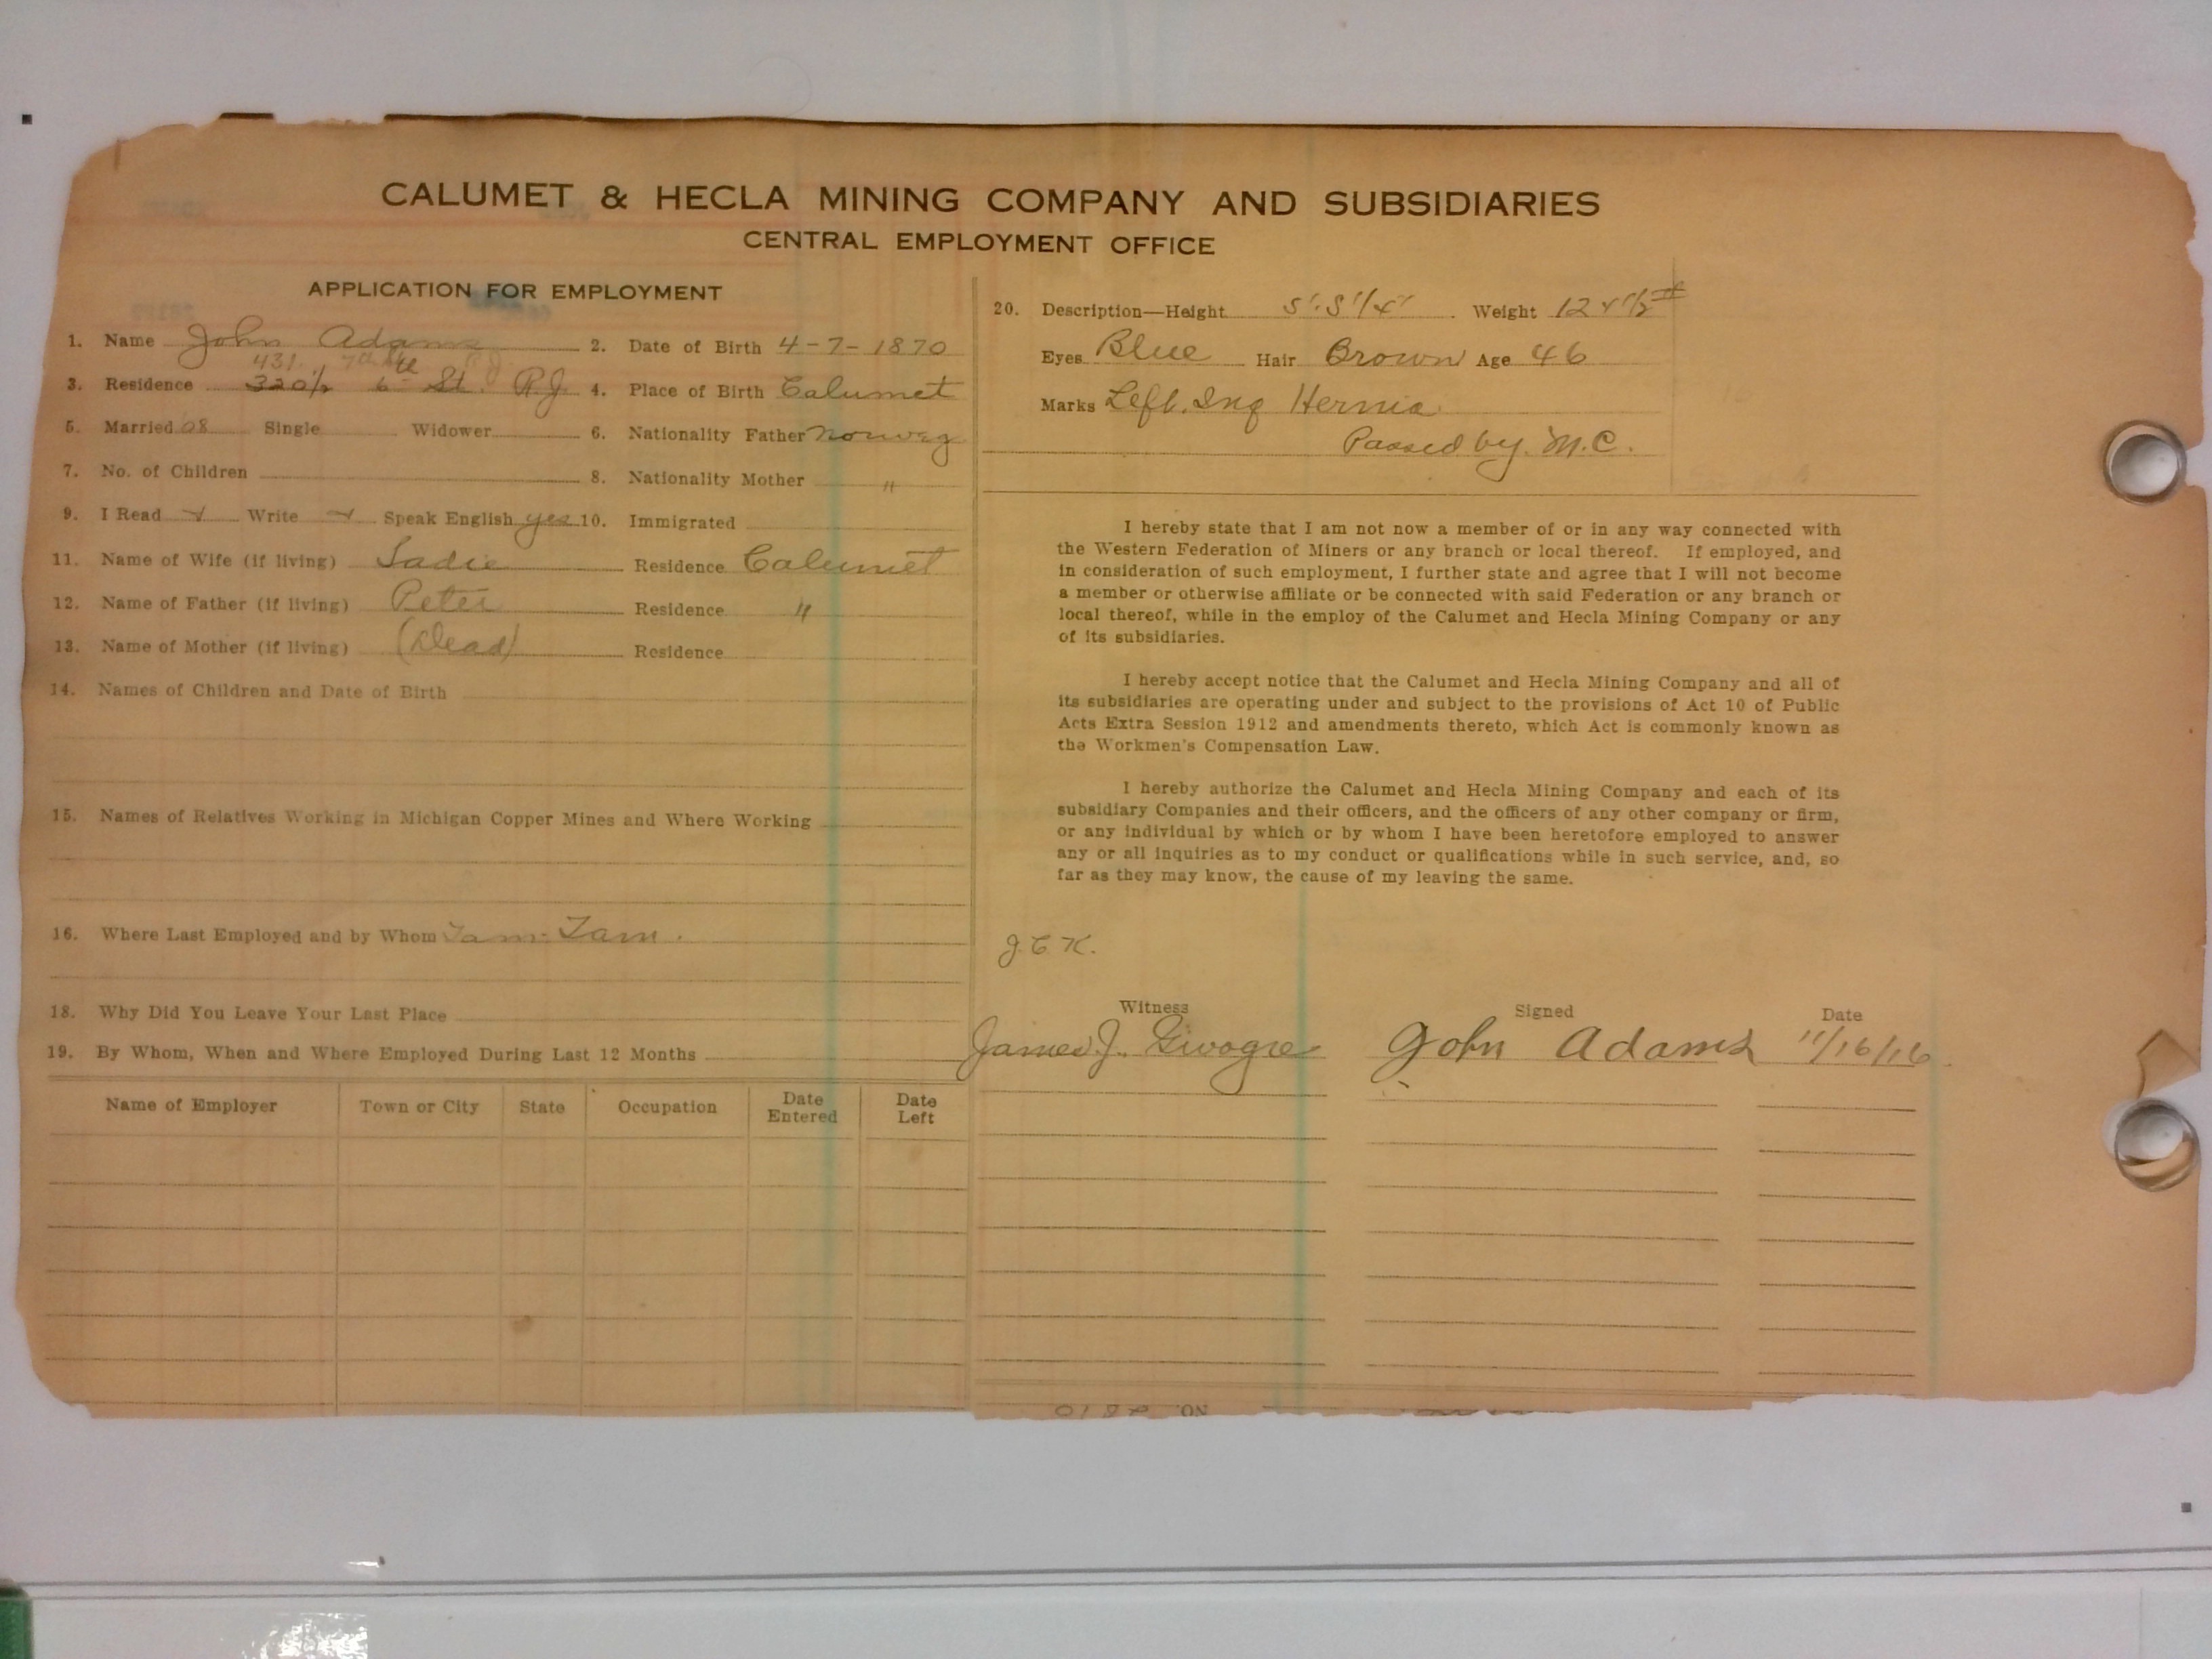 CALUMET & HECLA MINING COMPANY AND SUBSIDIARIES
CENTRAL EMPLOYMENT OFFICE
APPLICATION FOR EMPLOYMENT
1. Name John Adams 2. Date of Birth 4-7-1870
431 7th St R.J.
3. Residence 320½ 6th St. R.J. 4. Place of Birth Calumet
5. Married 08 Single Widower 6. Nationality Father Norweg
7. No. of Children 8. Nationality Mother "
9. I Read Write Speak English yes 10. Immigrated
11. Name of Wife (if living) Sadie Residence Calumet
12. Name of Father (if living) Peter Residence "
13. Name of Mother (if living) (Dead) Residence
14. Names of Children and Date of Birth
15. Names of Relatives Working in Michigan Copper Mines and Where Working
16. Where Last Employed and by Whom Tam. Tam.
18. Why Did You Leave Your Last Place
19. By Whom, When and Where Employed During Last 12 Months
Name of Employer Town or City State Occupation Date Entered Date Left
20. Description—Height Weight
Eyes Blue Hair Brown Age 46
Marks Left. Ing Hernia
Passed by M.C.
I hereby state that I am not now a member of or in any way connected with
the Western Federation of Miners or any branch or local thereof. If employed, and
in consideration of such employment, I further state and agree that I will not become
a member or otherwise affiliate or be connected with said Federation or any branch or
local thereof, while in the employ of the Calumet and Hecla Mining Company or any
of its subsidiaries.
I hereby accept notice that the Calumet and Hecla Mining Company and all of
its subsidiaries are operating under and subject to the provisions of Act 10 of Public
Acts Extra Session 1912 and amendments thereto, which Act is commonly known as
the Workmen's Compensation Law.
I hereby authorize the Calumet and Hecla Mining Company and each of its
subsidiary Companies and their officers, and the officers of any other company or firm,
or any individual by which or by whom I have been heretofore employed to answer
any or all inquiries as to my conduct or qualifications while in such service, and, so
far as they may know, the cause of my leaving the same.
Witness Signed Date
James J. John Adams 11/16/16
No. 2810